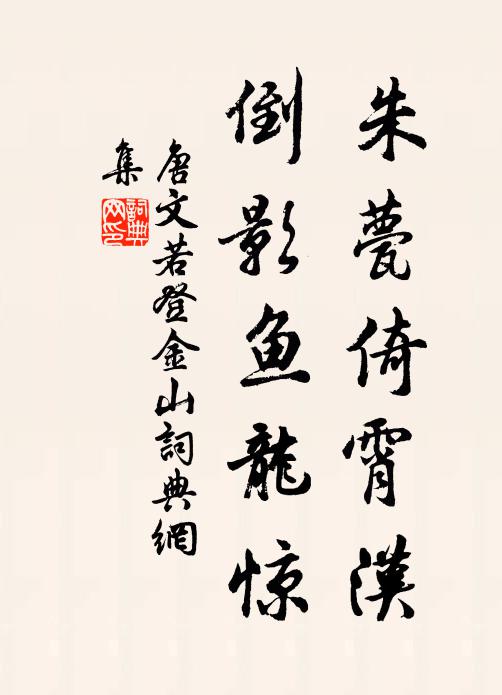 朱甍倚霄漢
倒影鱼龍惊
唐文若登金山詞典網
集
詞典网印